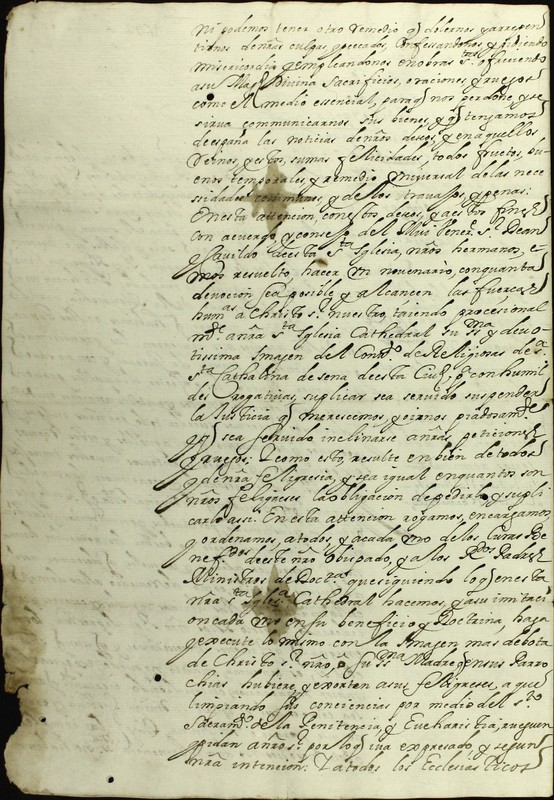 ni podemos tener otro remedio q̃ dolernos y arrepen
tirnos de nr̃as culpas y pecados, confessandolas y pidiendo
misericordia y empleandonos en obras s.tas ofreciendo
a su Mag.d Divina sacrificios, oraciones y ruegos
como el medio essencial, para q̃ nos perdone, y se
sirva communicarnos sus bienes, y q̃ tengamos
de españa las noticias de nr̃os deseos, y en aquellos
Reinos, y estos, sumas felicidades, todos fructos, bu
enos temporales, y remedio universal de las nece
ssidades comunes, y de los travajos, y penas:
En esta attencion, con estos deseos, y a estos fines
con acuerdo, y consejo del Mui Vener. S.r Dean
y Cavildo de esta s.ta Iglesia, nr̃os hermanos, e
mos resuelto, hacer un novenario, con quanta
devocion sea posible, y alcancen las fuerças
hum.as a Christo s.r nuestro, taiendo procesional
m.te a nr̃a s.ta Iglesia Cathedral su ss.ma y devo
tissima Imajen del Conv.to de Religiosas de s.a
s.ta Cathalina de sena de esta Ciu.d q̃ con humil
des rogativas, suplicar sea servido suspender
la Justicia q̃ merescemos, y oirnos piadosam.te
y q̃ sea servido inclinarse a nr̃as peticiones
y ruegos. I como esto, resulte en bien de todos
y de nr̃a feligresia, y sea igual en quantos son
nr̃os feligreses la obligacion de pedirlo y supli
carlo assi. En esta attencion rogamos, encargamos
y ordenamos, a todos, y a cada uno de los Curas Be
nef.dos de este nr̃o obispado, y a los R.dos Padres
Ministros de Doct.nas que siguiendo lo q̃ en esta
nr̃a s.ta Igles.a Cathedral hacemos, y a su imitaci
on cada uno en su beneficio y Doctrina, haga
y execute lo mismo con la Imajen mas debota
de Christo s.r nr̃o, o su ss.ma Madre q̃ en sus Parro
chias hubiere, y exorten a sus feligreses, a que
limpiando sus conciencias por medio del s.to
Sacram.to de la Penitencia, y Eucharistia, rueguen
y pidan a nr̃o s.r por lo q̃ iva expresado, y segun
nr̃a intencion. I a todos los Ecclesiasticos